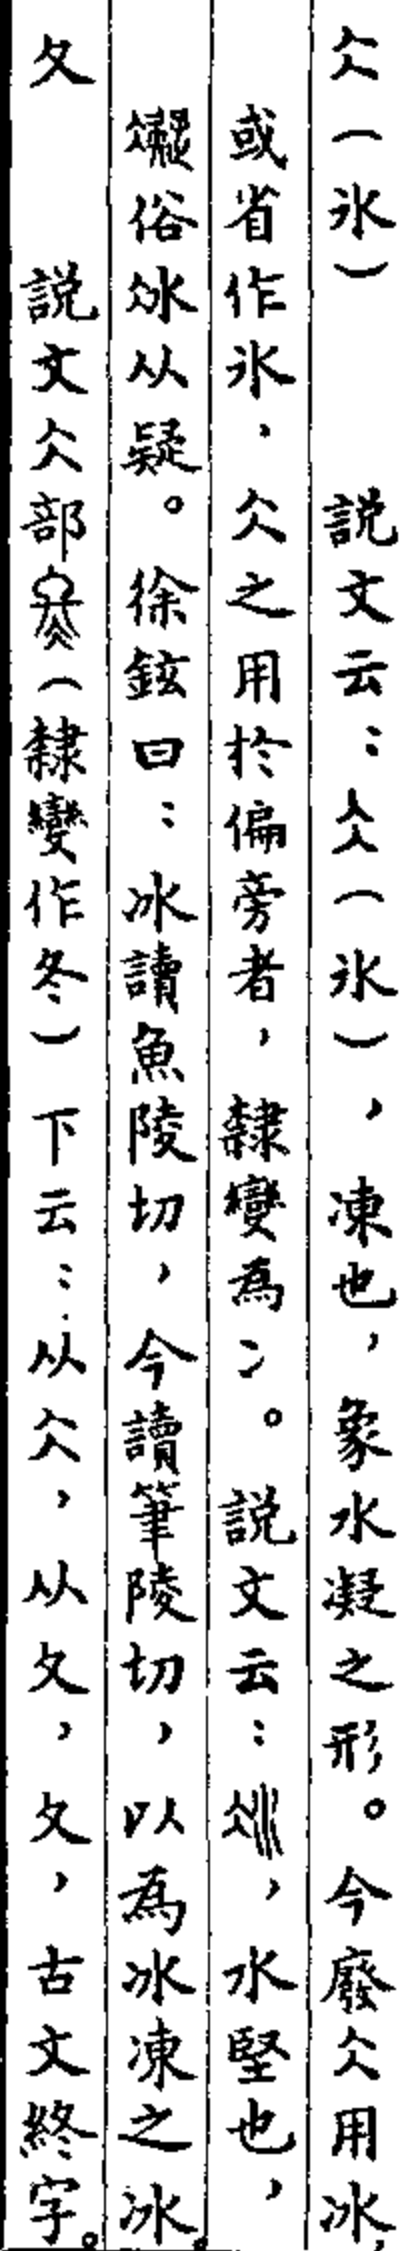 仌(氷) 説文云：仌(氷)，凍也，象水凝之形。今廢仌用冰，
或省作氷，仌之用於偏旁者，隸變為冫。説文云：冰，水堅也，
凝俗冰从疑。徐鉉曰：冰讀魚陵切，今讀筆陵切，以為冰凍之冰。
夂 説文仌部𠔙(隸變作冬)下云：从仌，从夂，夂，古文終字。